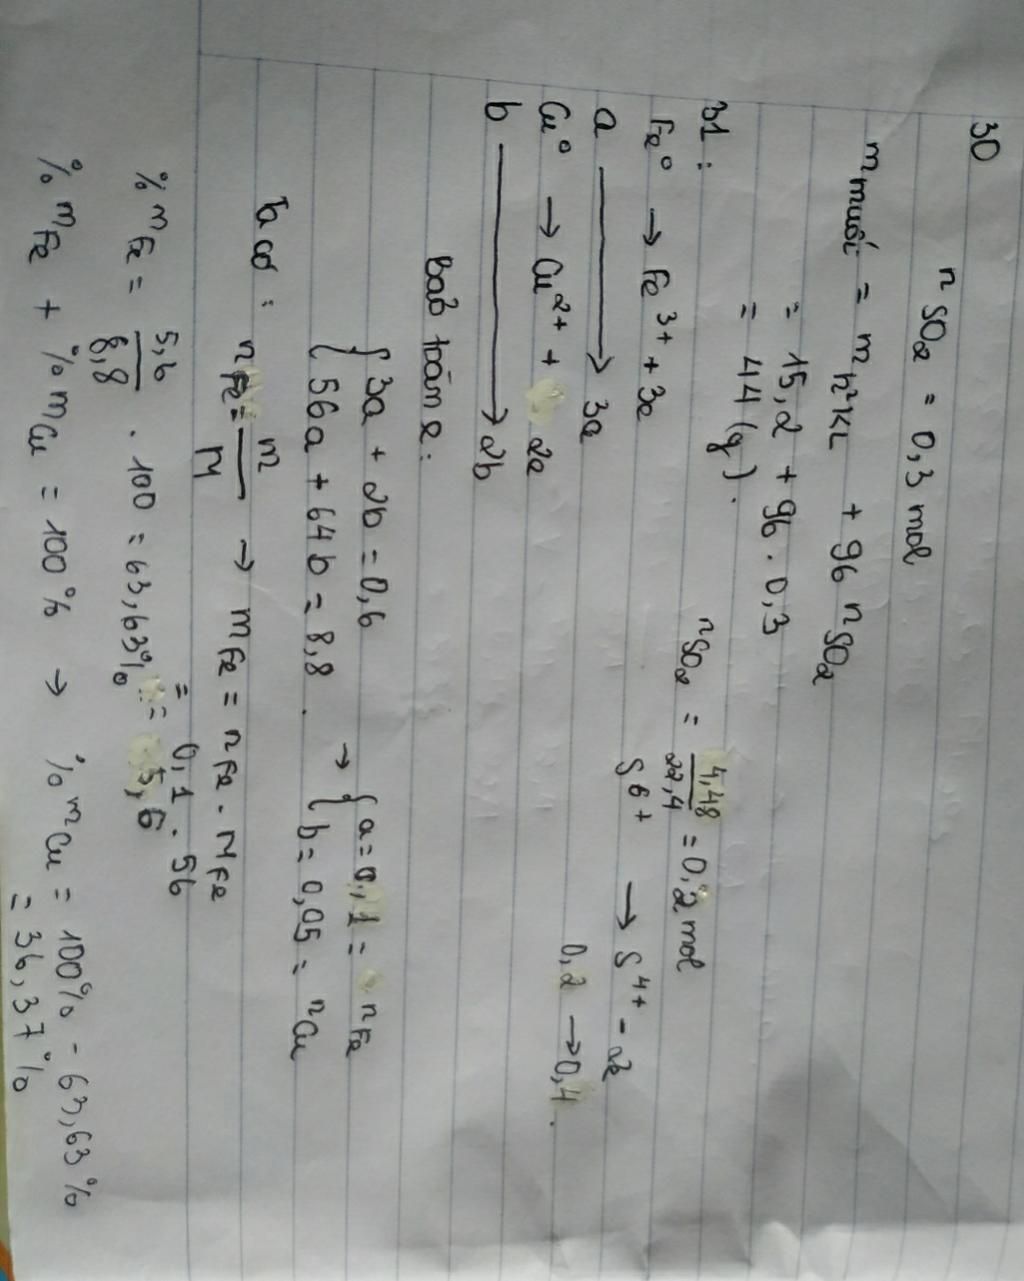 30
nSO2 = 0,3 mol
mmuối = mh²KL + 96 nSO2
= 15,2 + 96 . 0,3
= 44 (g).
31 :
nSO2 = 4,48/22,4 = 0,2 mol
Fe⁰ → Fe³⁺ + 3e
S⁶⁺ → S⁴⁺ - 2e
a → 3a
0,2 → 0,4.
Cu⁰ → Cu²⁺ + 2e
b → 2b
Bảo toàn e :
{ 3a + 2b = 0,6
{ 56a + 64b = 8,8 .
→ { a = 0,1 = nFe
{ b = 0,05 = nCu
Ta có : nFe = m/M → mFe = nFe . MFe
= 0,1 . 56
= 5,6
% mFe = 5,6/8,8 . 100 = 63,63%
% mFe + % mCu = 100% → % mCu = 100% - 63,63%
= 36,37%